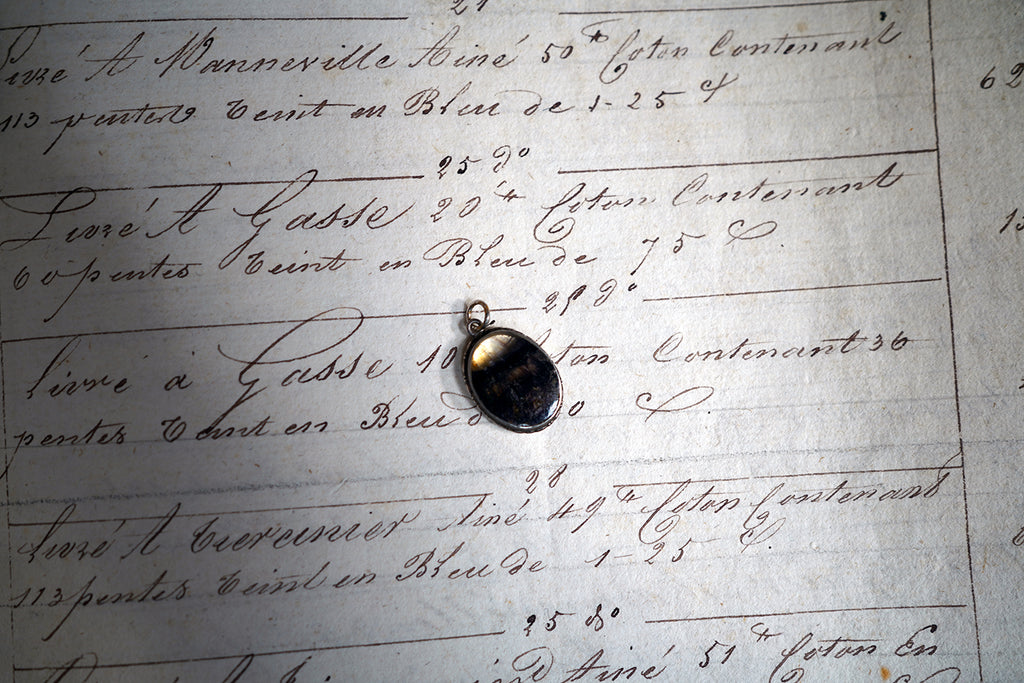 Livré A Manneville Ainé 50 tt Coton Contenant
113 pentes teint en Bleu de 1-25
25 do
Livré A Gasse 20 tt Coton Contenant
60 pentes teint en Bleu de 75
do
livré a Gasse 10 Coton Contenant 36
pentes teint en Bleu
28
Livré A Ainé 49 tt Coton Contenant
113 pentes teint en Bleu de 1-25
25 do
Ainé 51 tt Coton En